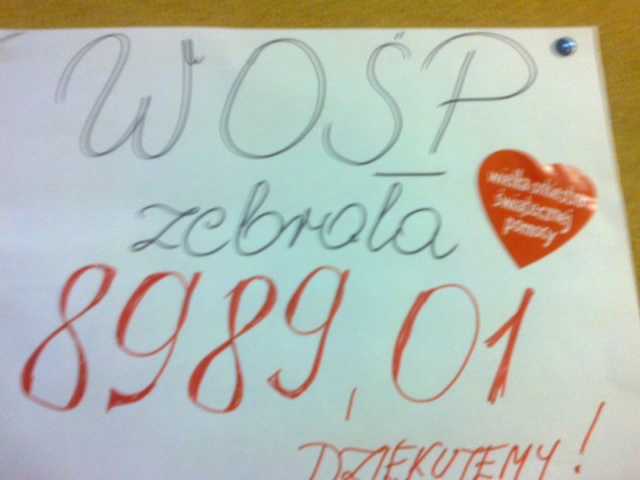 WOŚP
zebrała
wielka orkiestra
świątecznej
pomocy
8989,01
DZIĘKUJEMY!